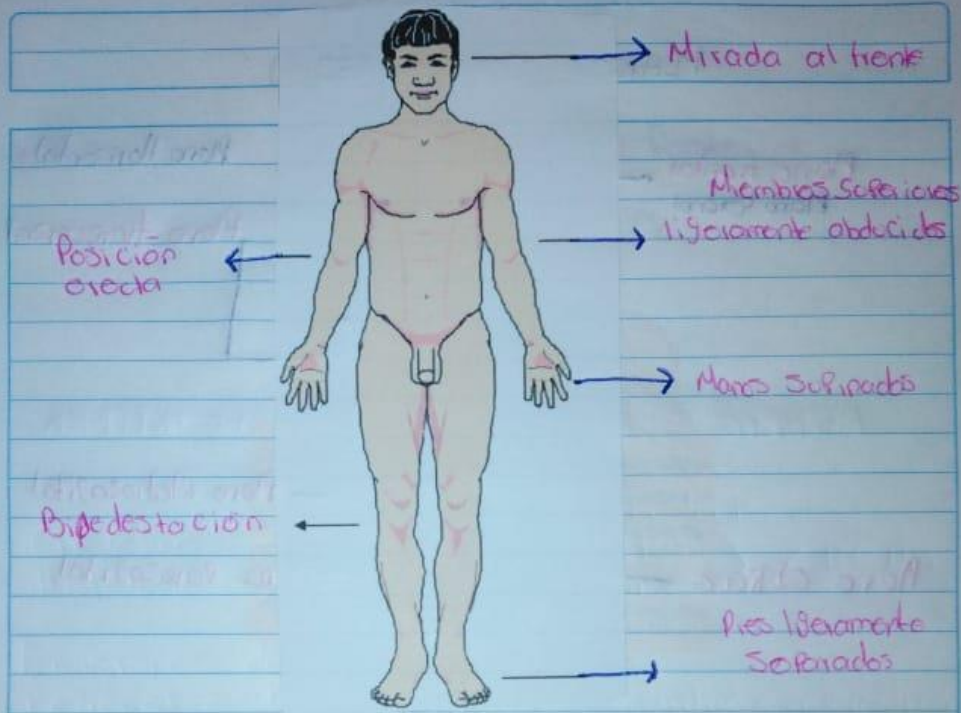 Mirada al frente
Miembros Superiores
ligeramente abducidos
Posición
erecta
Manos Supinados
Bipedestación
Pies ligeramente
Separados